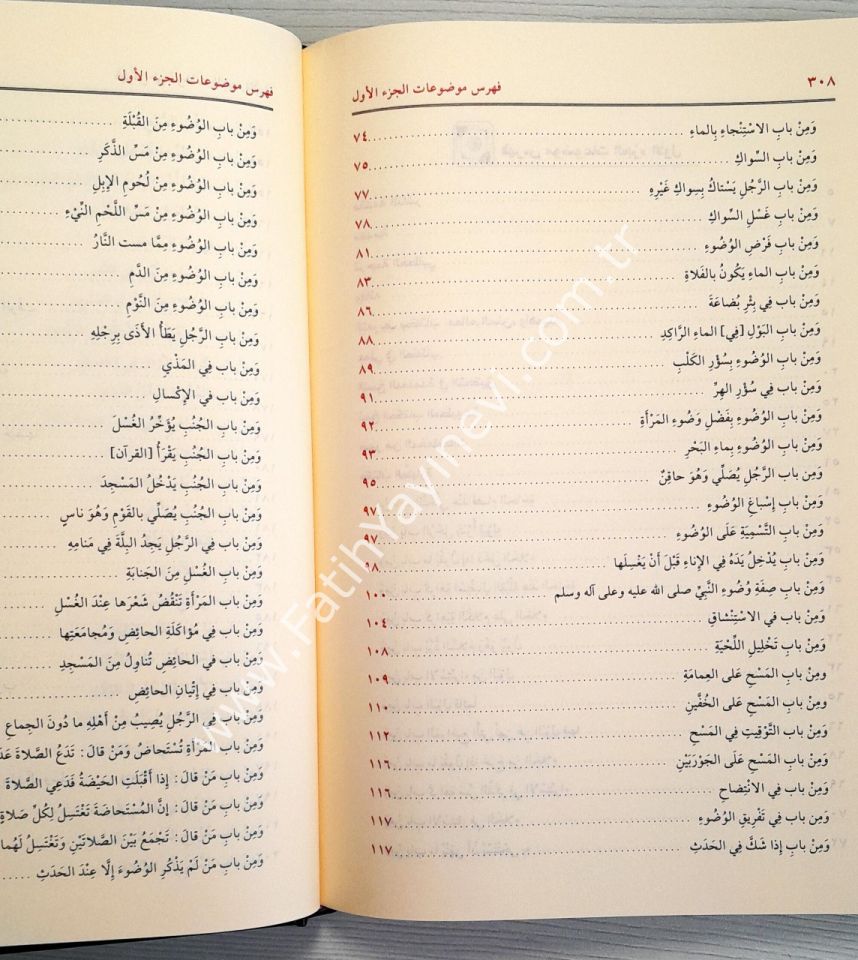 ٣٠٨ فهرس موضوعات الجزء الأول
وَمِنْ بابِ الاسْتِنْجاءِ بِالماءِ ٧٤
وَمِنْ بابِ السِّواكِ ٧٥
وَمِنْ بابِ الرَّجُلِ يَسْتاكُ بِسِواكِ غَيْرِهِ ٧٧
وَمِنْ بابِ غَسْلِ السِّواكِ ٧٨
وَمِنْ بابِ فَرْضِ الوُضُوءِ ٨١
وَمِنْ بابِ الماءِ يَكُونُ بِالفَلاةِ ٨٣
وَمِنْ باب فِي بِئْرِ بُضاعَةَ ٨٦
وَمِنْ بابِ البَوْلِ [فِي] الماءِ الرَّاكِدِ ٨٨
وَمِنْ بابِ الوُضُوءِ بِسُؤْرِ الكَلْبِ ٨٩
وَمِنْ باب فِي سُؤْرِ الهِرِّ ٩١
وَمِنْ بابِ الوُضُوءِ بِفَضْلِ وَضُوءِ المَرْأَةِ ٩٢
وَمِنْ بابِ الوُضُوءِ بِماءِ البَحْرِ ٩٣
وَمِنْ بابِ الرَّجُلِ يُصَلِّي وَهُوَ حاقِنٌ ٩٥
وَمِنْ بابِ إِسْباغِ الوُضُوءِ ٩٧
وَمِنْ بابِ التَّسْمِيَةِ عَلَى الوُضُوءِ ٩٧
وَمِنْ بابِ يُدْخِلُ يَدَهُ فِي الإِناءِ قَبْلَ أَنْ يَغْسِلَها ٩٨
وَمِنْ بابِ صِفَةِ وُضُوءِ النَّبِيِّ صلى الله عليه وعلى آله وسلم ١٠٠
وَمِنْ باب في الاسْتِنْشاقِ ١٠٤
وَمِنْ بابِ تَخْلِيلِ اللِّحْيَةِ ١٠٨
وَمِنْ بابِ المَسْحِ عَلى العِمامَةِ ١٠٩
وَمِنْ بابِ المَسْحِ عَلى الخُفَّيْنِ ١١٠
وَمِنْ بابِ التَّوْقِيتِ فِي المَسْحِ ١١٢
وَمِنْ بابِ المَسْحِ عَلَى الجَوْرَبَيْنِ ١١٦
وَمِنْ باب فِي الانْتِضاحِ ١١٦
وَمِنْ باب فِي تَفْرِيقِ الوُضُوءِ ١١٧
وَمِنْ بابِ إِذا شَكَّ فِي الحَدَثِ ١١٧
فهرس موضوعات الجزء الأول
وَمِنْ بابِ الوُضُوءِ مِنَ القُبْلَةِ
وَمِنْ بابِ الوُضُوءِ مِنْ مَسِّ الذَّكَرِ
وَمِنْ بابِ الوُضُوءِ مِنْ لُحُومِ الإِبِلِ
وَمِنْ بابِ الوُضُوءِ مِنْ مَسِّ اللَّحْمِ النِّيْءِ
وَمِنْ بابِ الوُضُوءِ مِمَّا مست النَّارُ
وَمِنْ بابِ الوُضُوءِ مِنَ الدَّمِ
وَمِنْ بابِ الوُضُوءِ مِنَ النَّوْمِ
وَمِنْ بابِ الرَّجُلِ يَطَأُ الأَذَى بِرِجْلِهِ
وَمِنْ باب فِي المَذْي
وَمِنْ باب في الإِكْسالِ
وَمِنْ بابِ الجُنُبِ يُؤَخِّرُ الغُسْلَ
وَمِنْ بابِ الجُنُبِ يَقْرَأُ [القرآن]
وَمِنْ بابِ الجُنُبِ يَدْخُلُ المَسْجِدَ
وَمِنْ بابِ الجُنُبِ يُصَلِّي بالقَوْمِ وَهُوَ ناسٍ
وَمِنْ باب فِي الرَّجُلِ يَجِدُ البِلَّةَ فِي مَنامِهِ
وَمِنْ بابِ الغُسْلِ مِنَ الجَنابَةِ
وَمِنْ بابِ المَرْأَةِ تَنْقُضُ شَعْرَها عِنْدَ الغُسْلِ
وَمِنْ باب فِي مُؤاكَلَةِ الحائِضِ وَمُجامَعَتِها
وَمِنْ باب في الحائِضِ تُناوِلُ مِنَ المَسْجِدِ
وَمِنْ باب فِي إِتْيانِ الحائِضِ
وَمِنْ باب فِي الرَّجُلِ يُصِيبُ مِنْ أَهْلِهِ ما دُونَ الجِماعِ
وَمِنْ بابِ المَرْأَةِ تُسْتَحاضُ وَمَنْ قالَ: تَدَعُ الصَّلاةَ
وَمِنْ بابِ مَنْ قالَ: إِذا أَقْبَلَتِ الحَيْضَةُ فَدَعِي الصَّلاةَ
وَمِنْ بابِ مَنْ قالَ: إِنَّ المُسْتَحاضَةَ تَغْتَسِلُ لِكُلِّ صَلاةٍ
وَمِنْ بابِ مَنْ قالَ: تَجْمَعُ بَيْنَ الصَّلاتَيْنِ وَتَغْتَسِلُ لَهُما
وَمِنْ بابِ مَنْ لَمْ يَذْكُرِ الوُضُوءَ إِلَّا عِنْدَ الحَدَثِ
www.FatihYayinevi.com.tr